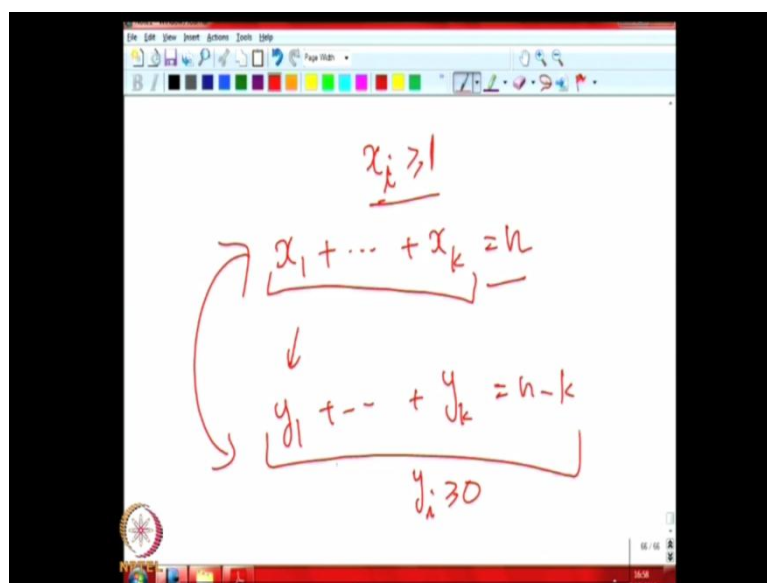 File Edit View Insert Actions Tools Help
Page Width
B I
xᵢ ≥ 1
x₁ + ⋯ + xₖ = n
↓
y₁ + -- + yₖ = n - k
yᵢ ≥ 0
66 / 66
NPTEL
16:58